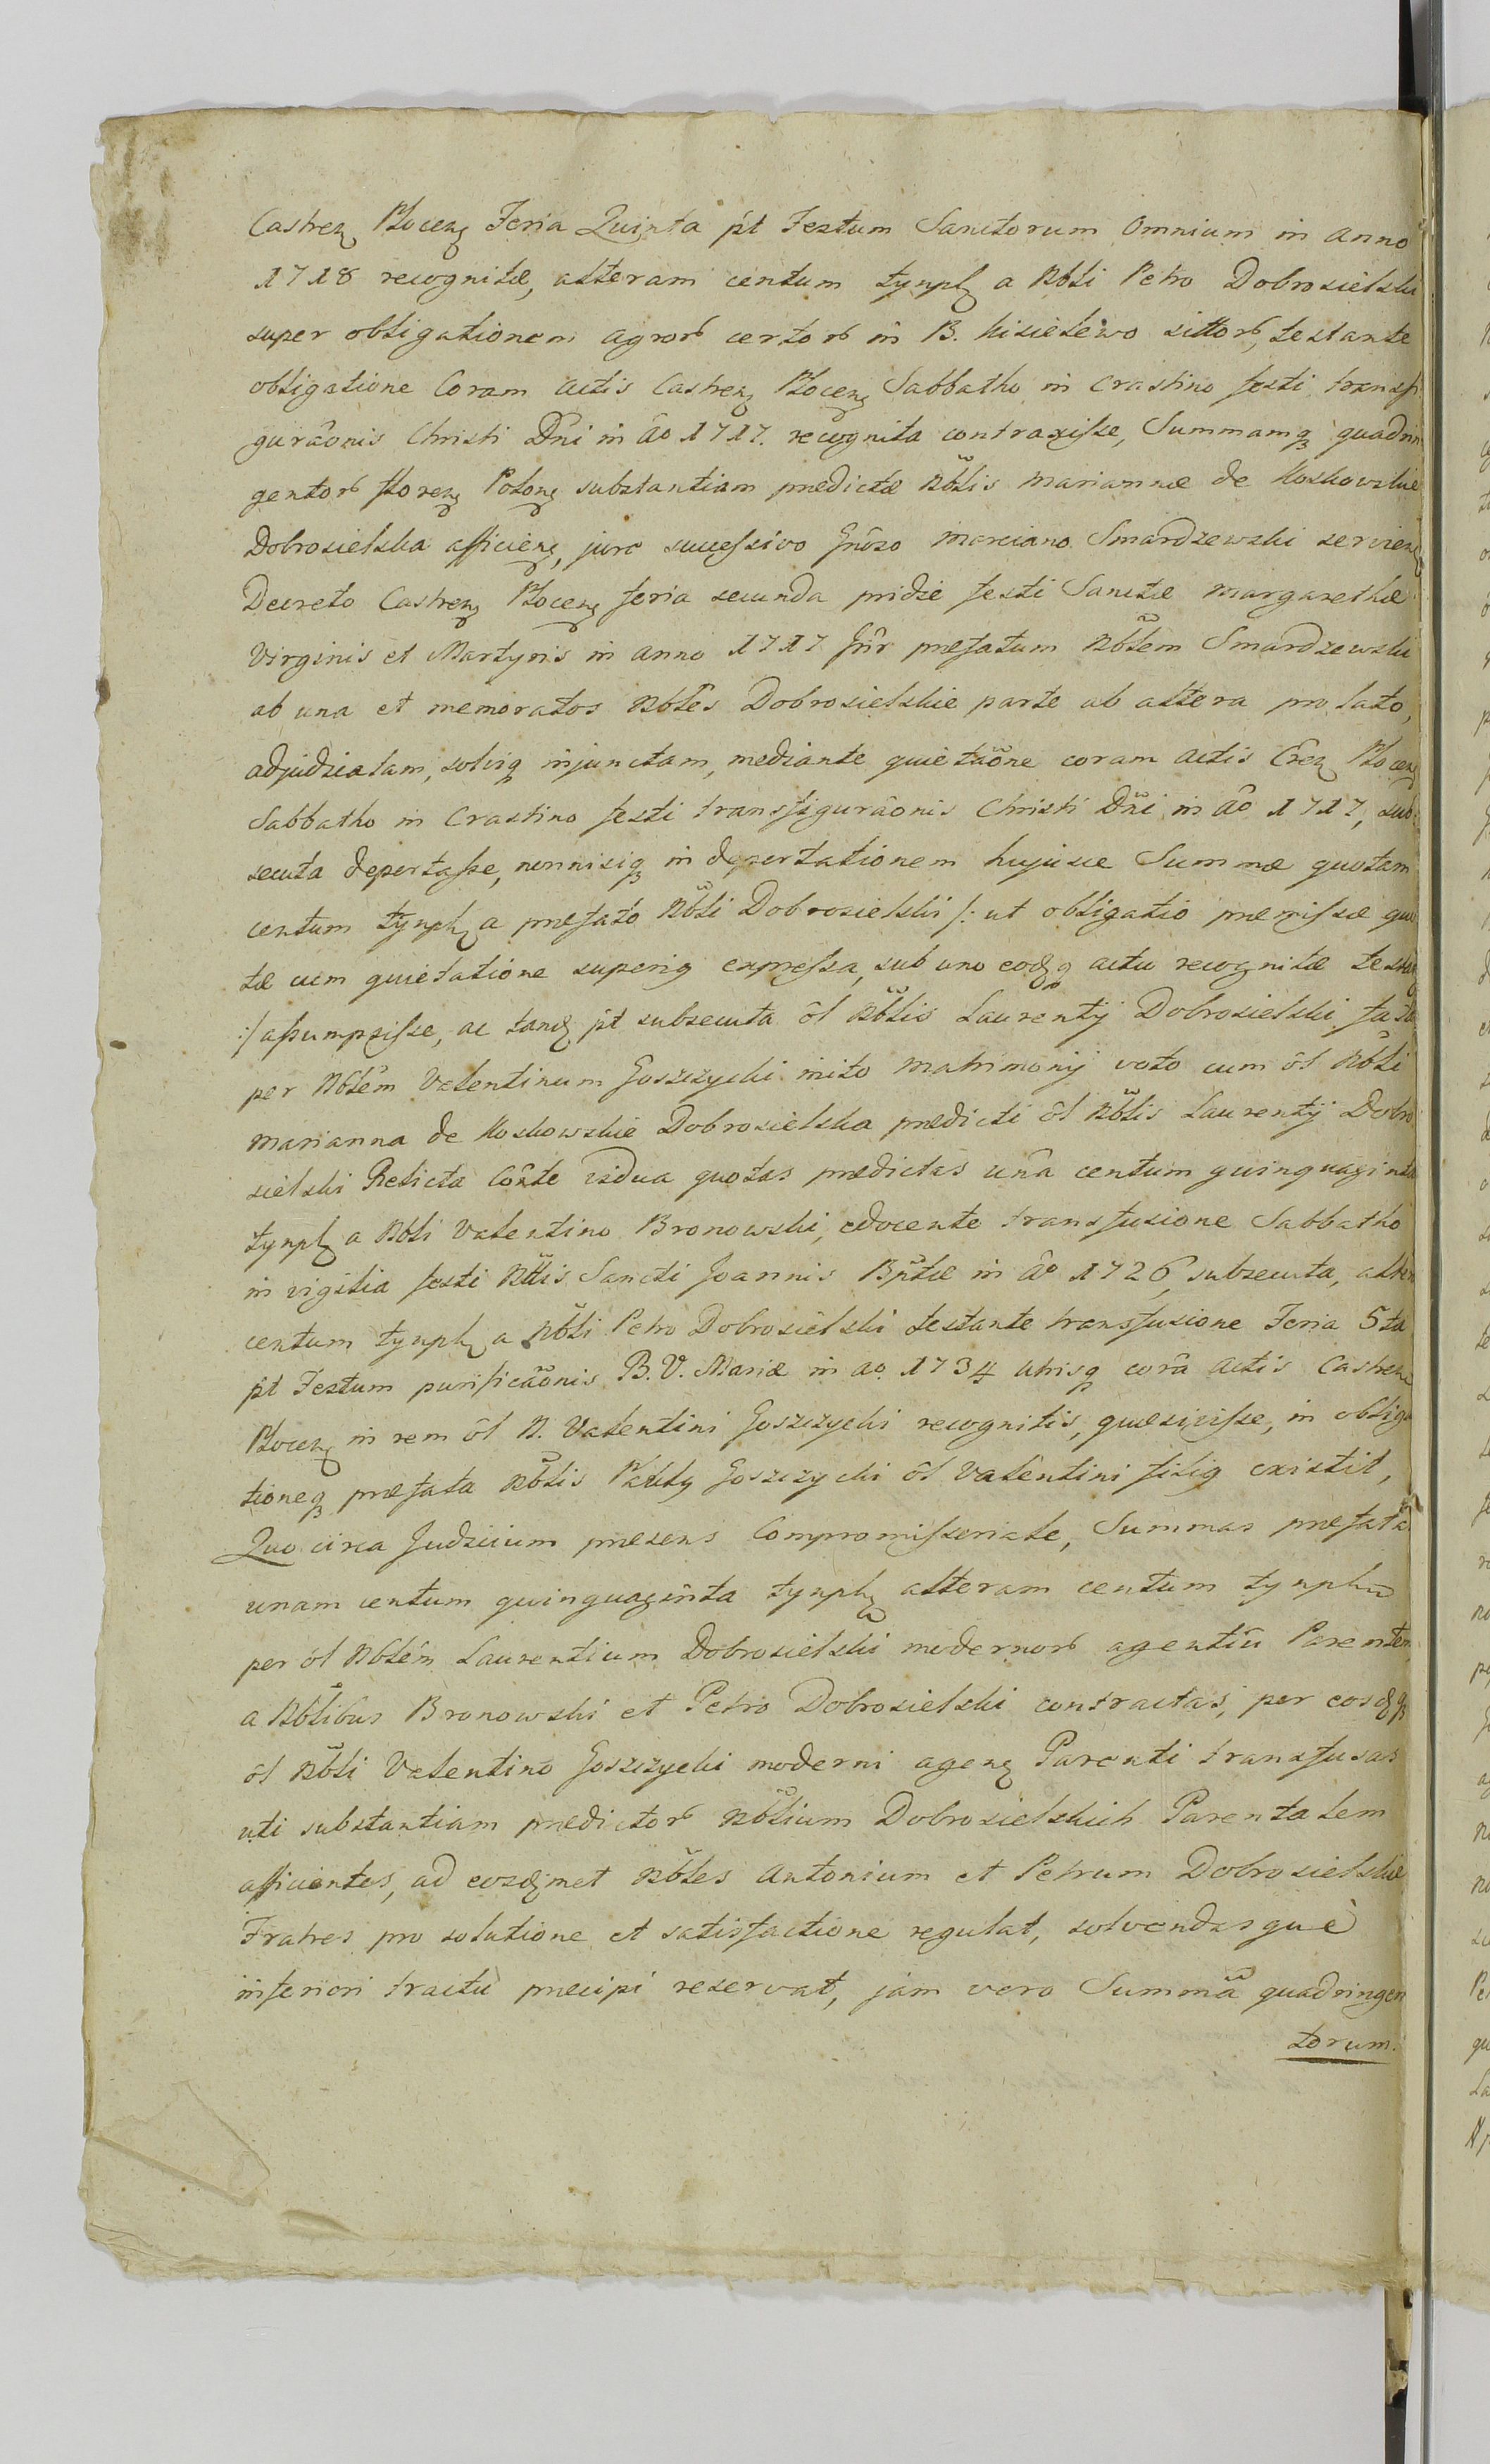 Castren Plocen Feria Quinta pt Festum Sanctorum Omnium in anno
1718 recognitæ, alteram centum tynph a Nbli Petro Dobrosielski
super obligationem agror certor in B. Kisielewo sittor, testante
obligatione Coram actis Castren Plocen Sabbatho in crastino festi transfi
gurãonis Christi Dñi in ão 1717. recognita contraxisse, Summamq quadrin
gentor floren Polon substantiam prædictæ Nblis Mariannæ de Koskowskie
Dobrosielska afficien, jure successivo Gñoso Marciano Smardzewski servien
Decreto Castren Plocen feria secunda pridie festi Sanctæ Margarethæ
Virginis et Martyris in anno 1717 Intr præfatum Nblem Smardzewski
ab una et memoratos Nbles Dobrosielskie parte ab altera pro lato,
adjudicatam, solviq injunctam, mediante quietãone coram actis Cren Plocen
Sabbatho in Crastino festi transfigurãonis Christi Dñi in ão 1717, sub
secuta deportasse, nonnisiq in deportationem hujusce Summæ quotam
centum tynph a præfato Nbli Dobrosielski /: ut obligatio præmissæ quo
tæ cum quietatione superiq expressa, sub uno eodq actu recognitæ testan
:/ assumpsisse, ac tand pt subsecuta ol Nblis Laurentij Dobrosielski fata
per Nblem Valentinum Goszczycki inito matrimonij voto cum ol Nbli
Marianna de Koskowskie Dobrosielska prædicti ol Nblis Laurentij Dobro
sielski Relicta Conte vidua quotas prædictas unã centum quinquaginta
tynph a Nbli Valentino Bronowski, edocente transfusione Sabbatho
in vigilia festi Nttis Sancti Joannis Bptæ in ão 1726, subsecuta, alter
centum tynph a Nbli Petro Dobrosielski testante transfusione Feria 5ta
pt Festum purificãonis B. V. Mariæ in ao 1734 utrisq corã actis Castren
Plocen in rem ol N. Valentini Goszczycki recognitis, quæsivisse, in obliga
tioneq præfata Nblis Goszczycki ol Valentini filiq existit,
Quo circa Judicium præsens Compromissoriale, Summas præfatas
unam centum quinquaginta tynph alteram centum tynph
per ol Nblem Laurentium Dobrosielski modernor agentiũ Parentem
a Nblibus Bronowski et Petro Dobrosielski contractas, per eosdq
ol Nbli Valentino Goszczycki moderni agen Parenti transfusas
uti substantiam prædictor Nblium Dobrosielskich Parentalem
afficientes, ad eosdmet Nbles Antonium et Petrum Dobrosielskie
Fratres pro solutione et satisfactione regulat, solvendasque
inferiori tractu præcipi reservat, jam vero Summã quadringen
torum.